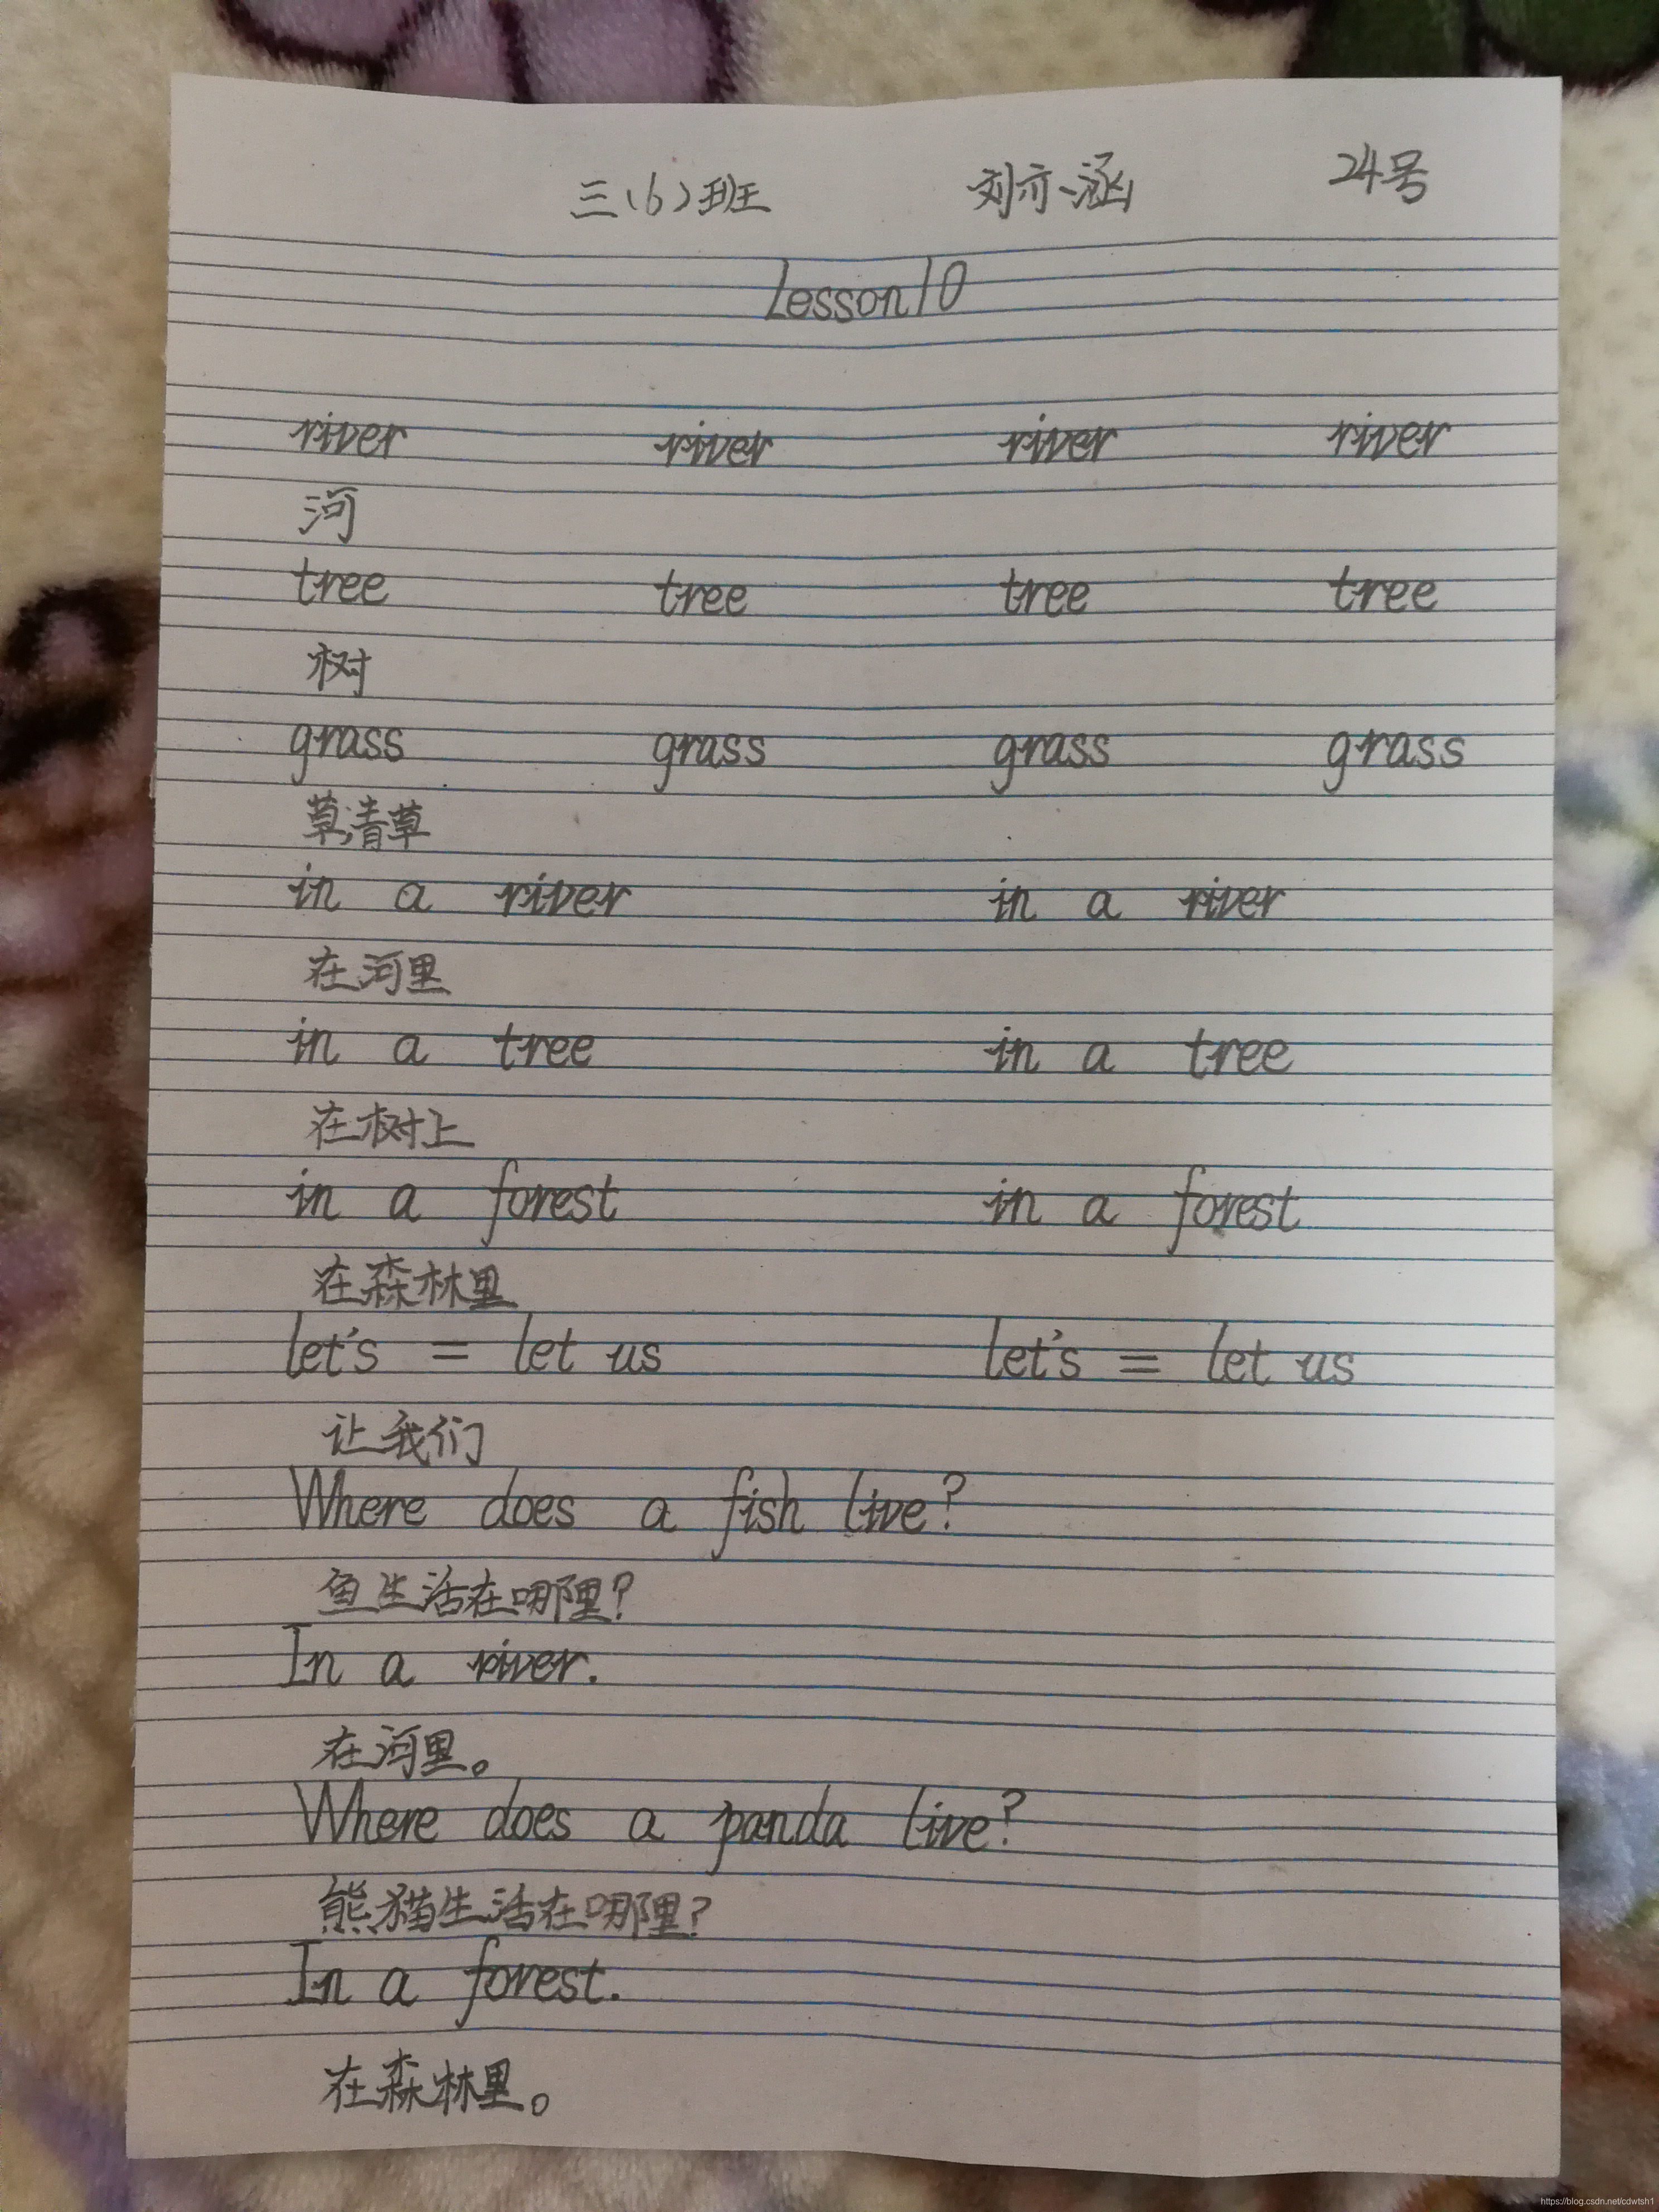 三(6)班 刘亦涵 24号
Lesson10
river river river river
河
tree tree tree tree
树
grass grass grass grass
草;清草
in a river in a river
在河里
in a tree in a tree
在树上
in a forest in a forest
在森林里
let's = let us let's = let us
让我们
Where does a fish live?
鱼生活在哪里?
In a river.
在河里。
Where does a panda live?
熊猫生活在哪里?
In a forest.
在森林里。
https://blog.csdn.net/cdwtsh1